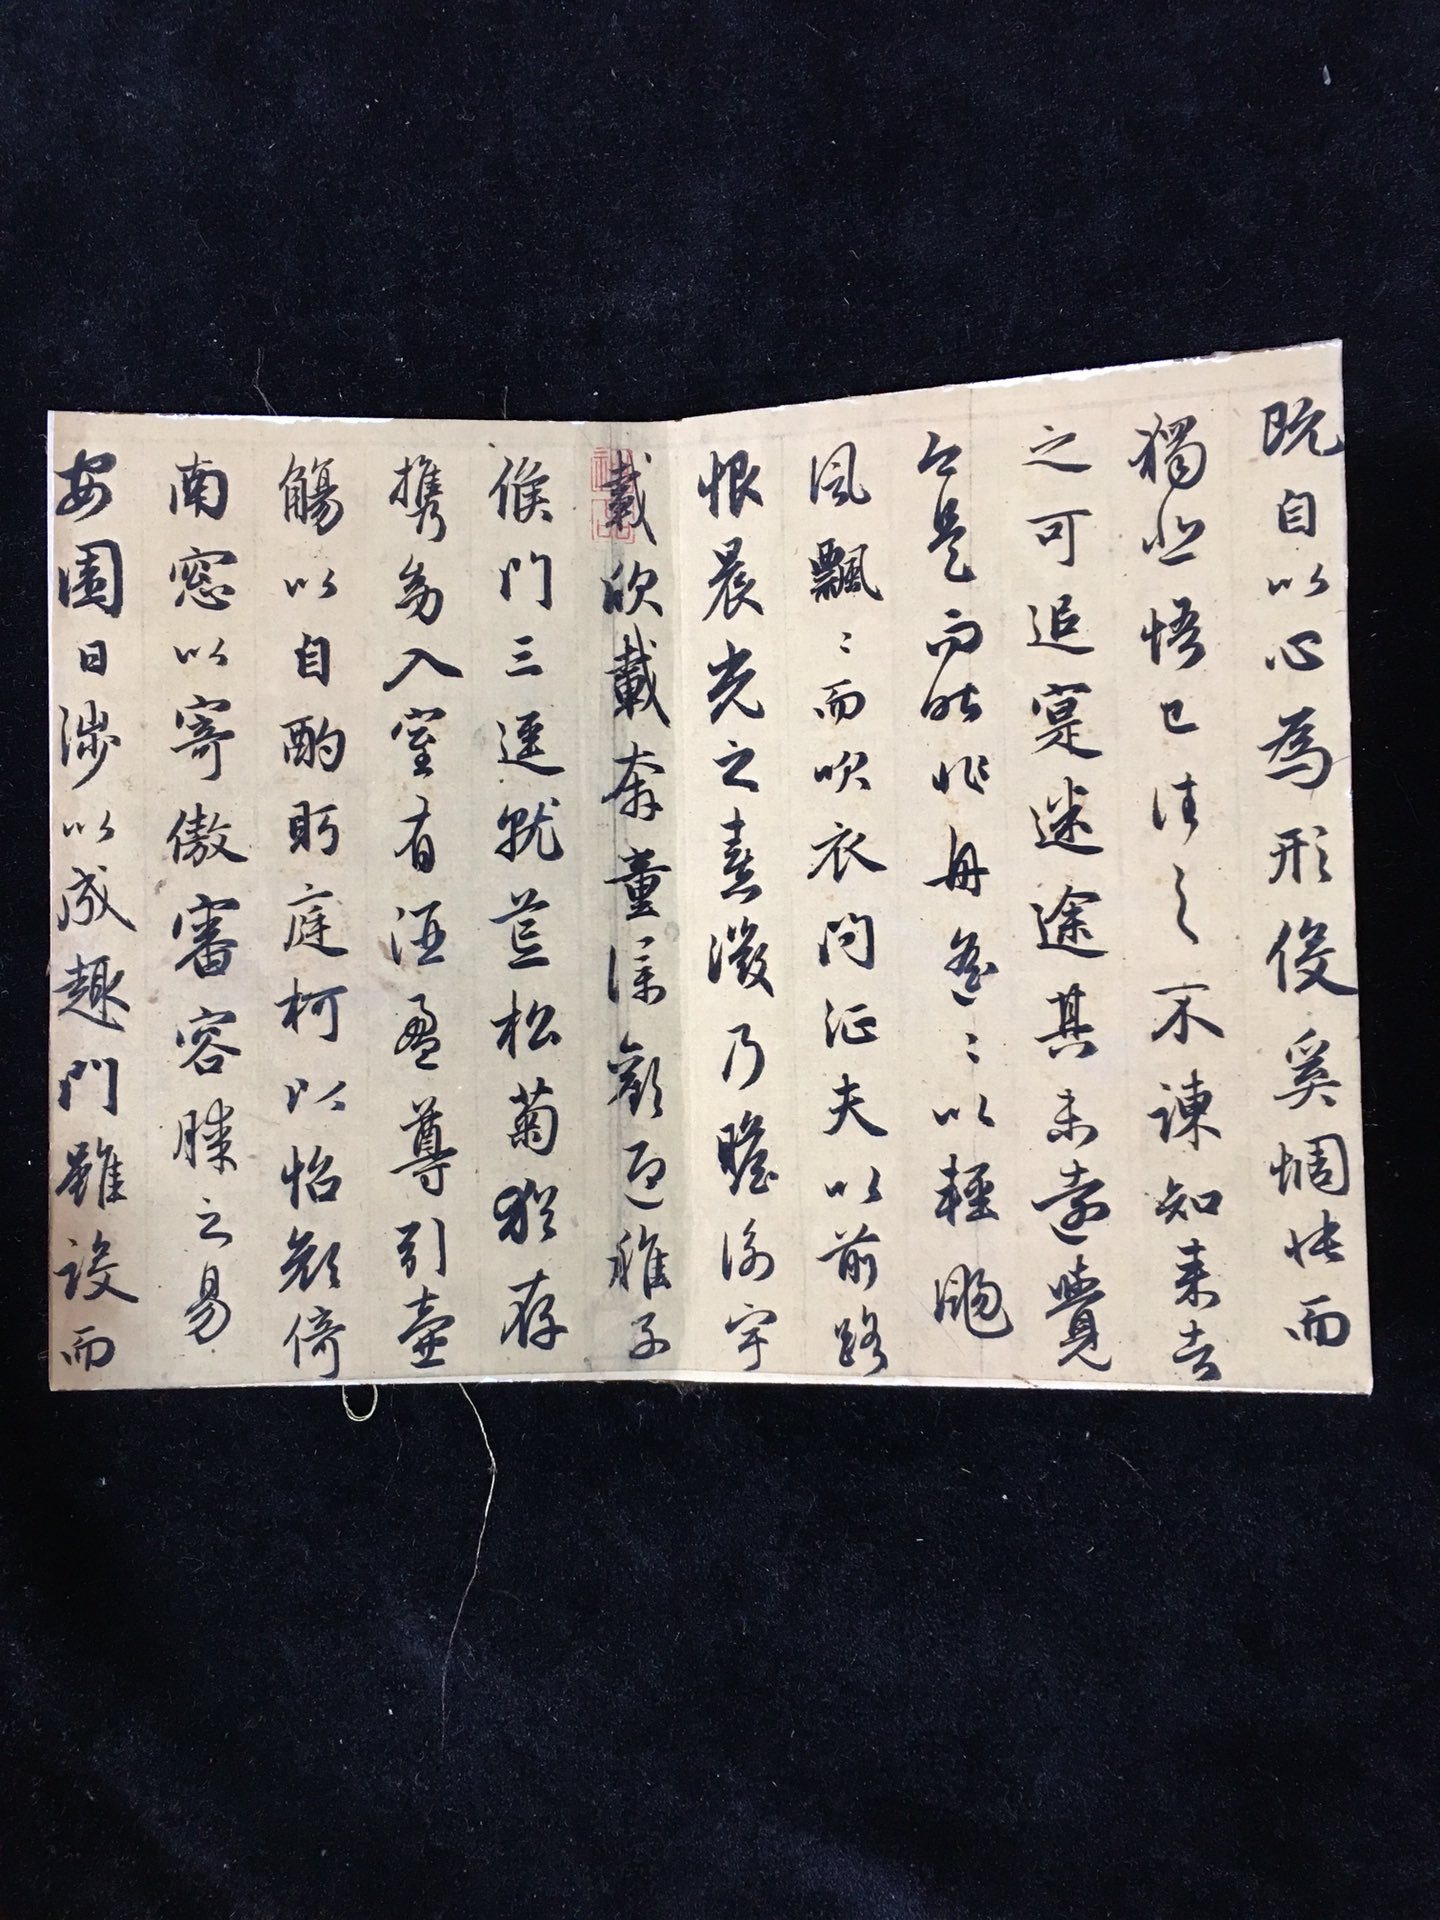 既自以心為形役奚惆悵而
獨悲悟已往之不諫知来者
之可追寔迷途其未遠覺
今是而昨非舟遙〻以輕颺
風飄〻而吹衣問征夫以前路
恨晨光之熹微乃瞻衡宇
載欣載奔童僕歡迎稚子
候門三逕就荒松菊猶存
攜幼入室有酒盈尊引壺
觴以自酌眄庭柯以怡顏倚
南窓以寄傲審容膝之易
安園日涉以成趣門雖設而